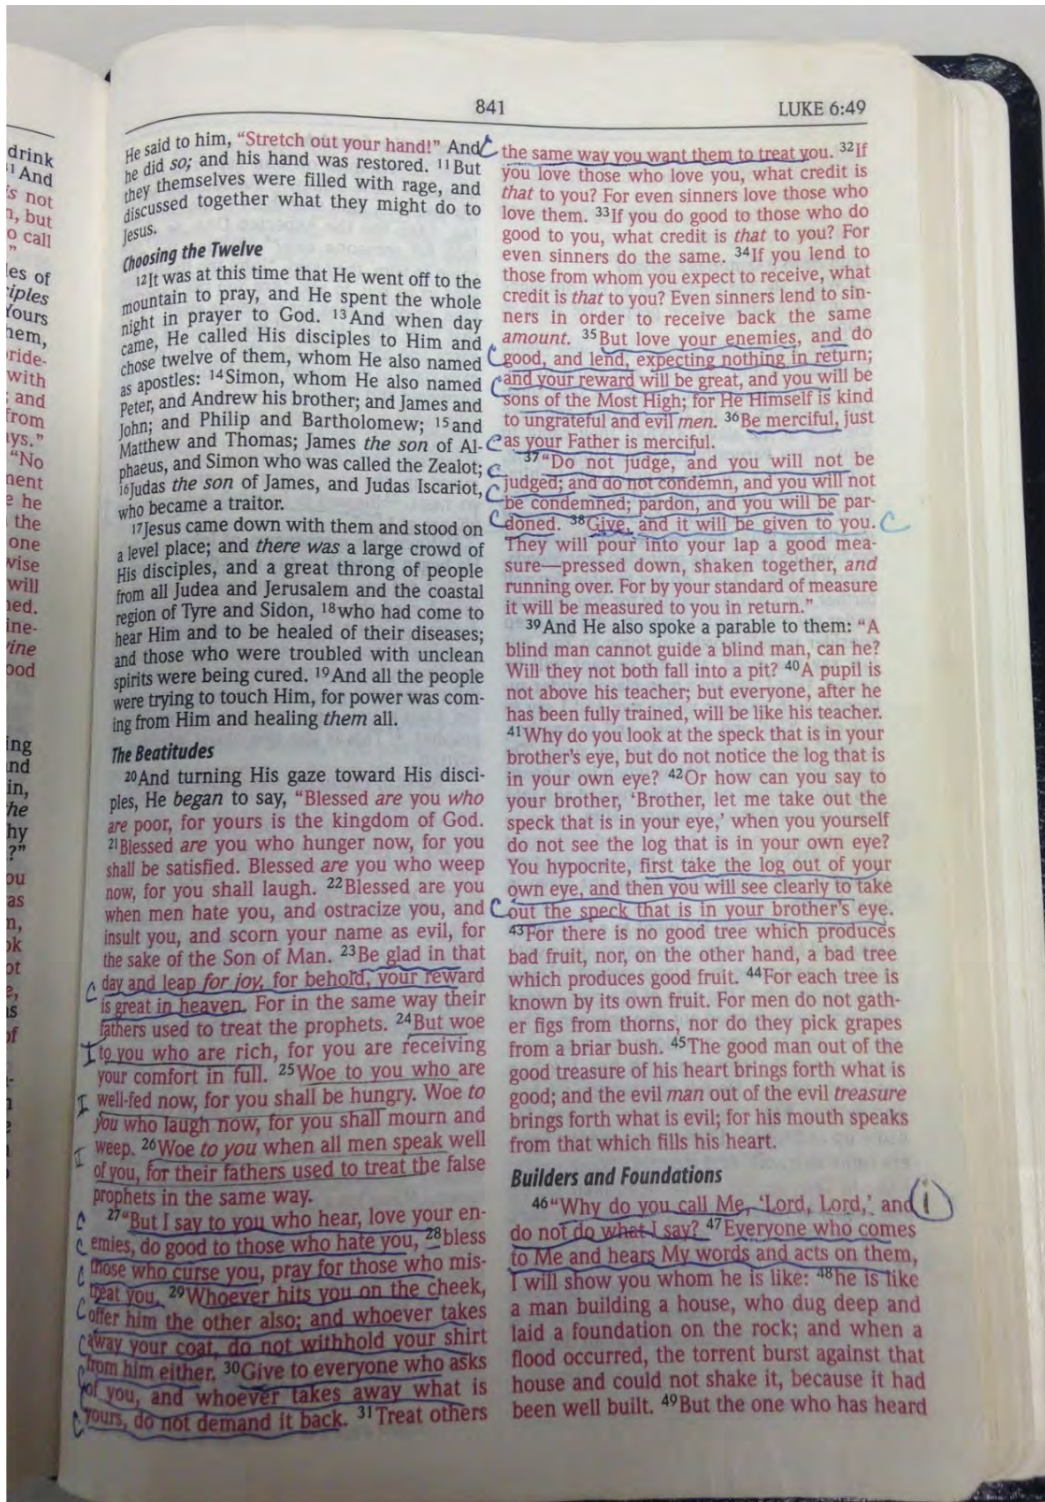 drink
11 And
s not
n, but
o call
"
les of
ciples
Yours
hem,
bride-
with
; and
from
ys."
"No
ment
e he
the
one
wise
will
ned.
ine-
vine
ood
ing
nd
in,
he
hy
?"
ou
as
n,
ok
ot
e,
as
of
841
LUKE 6:49
He said to him, "Stretch out your hand!" And
he did so; and his hand was restored. 11 But
they themselves were filled with rage, and
discussed together what they might do to
Jesus.
Choosing the Twelve
12It was at this time that He went off to the
mountain to pray, and He spent the whole
night in prayer to God. 13And when day
came, He called His disciples to Him and
chose twelve of them, whom He also named
as apostles: 14Simon, whom He also named
Peter, and Andrew his brother; and James and
John; and Philip and Bartholomew; 15and
Matthew and Thomas; James the son of Al-
phaeus, and Simon who was called the Zealot;
16Judas the son of James, and Judas Iscariot,
who became a traitor.
17Jesus came down with them and stood on
a level place; and there was a large crowd of
His disciples, and a great throng of people
from all Judea and Jerusalem and the coastal
region of Tyre and Sidon, 18who had come to
hear Him and to be healed of their diseases;
and those who were troubled with unclean
spirits were being cured. 19And all the people
were trying to touch Him, for power was com-
ing from Him and healing them all.
The Beatitudes
20And turning His gaze toward His disci-
ples, He began to say, "Blessed are you who
are poor, for yours is the kingdom of God.
21Blessed are you who hunger now, for you
shall be satisfied. Blessed are you who weep
now, for you shall laugh. 22Blessed are you
when men hate you, and ostracize you, and
insult you, and scorn your name as evil, for
the sake of the Son of Man. 23Be glad in that
day and leap for joy, for behold, your reward
is great in heaven. For in the same way their
fathers used to treat the prophets. 24But woe
to you who are rich, for you are receiving
your comfort in full. 25Woe to you who are
well-fed now, for you shall be hungry. Woe to
you who laugh now, for you shall mourn and
weep. 26Woe to you when all men speak well
of you, for their fathers used to treat the false
prophets in the same way.
27"But I say to you who hear, love your en-
emies, do good to those who hate you, 28bless
those who curse you, pray for those who mis-
treat you. 29Whoever hits you on the cheek,
offer him the other also; and whoever takes
away your coat, do not withhold your shirt
from him either. 30Give to everyone who asks
of you, and whoever takes away what is
yours, do not demand it back. 31Treat others
the same way you want them to treat you. 32If
you love those who love you, what credit is
that to you? For even sinners love those who
love them. 33If you do good to those who do
good to you, what credit is that to you? For
even sinners do the same. 34If you lend to
those from whom you expect to receive, what
credit is that to you? Even sinners lend to sin-
ners in order to receive back the same
amount. 35But love your enemies, and do
good, and lend, expecting nothing in return;
and your reward will be great, and you will be
sons of the Most High; for He Himself is kind
to ungrateful and evil men. 36Be merciful, just
as your Father is merciful.
37"Do not judge, and you will not be
judged; and do not condemn, and you will not
be condemned; pardon, and you will be par-
doned. 38Give, and it will be given to you.
They will pour into your lap a good mea-
sure—pressed down, shaken together, and
running over. For by your standard of measure
it will be measured to you in return."
39And He also spoke a parable to them: "A
blind man cannot guide a blind man, can he?
Will they not both fall into a pit? 40A pupil is
not above his teacher; but everyone, after he
has been fully trained, will be like his teacher.
41Why do you look at the speck that is in your
brother's eye, but do not notice the log that is
in your own eye? 42Or how can you say to
your brother, 'Brother, let me take out the
speck that is in your eye,' when you yourself
do not see the log that is in your own eye?
You hypocrite, first take the log out of your
own eye, and then you will see clearly to take
out the speck that is in your brother's eye.
43For there is no good tree which produces
bad fruit, nor, on the other hand, a bad tree
which produces good fruit. 44For each tree is
known by its own fruit. For men do not gath-
er figs from thorns, nor do they pick grapes
from a briar bush. 45The good man out of the
good treasure of his heart brings forth what is
good; and the evil man out of the evil treasure
brings forth what is evil; for his mouth speaks
from that which fills his heart.
Builders and Foundations
46"Why do you call Me, 'Lord, Lord,' and
do not do what I say? 47Everyone who comes
to Me and hears My words and acts on them,
I will show you whom he is like: 48he is like
a man building a house, who dug deep and
laid a foundation on the rock; and when a
flood occurred, the torrent burst against that
house and could not shake it, because it had
been well built. 49But the one who has heard